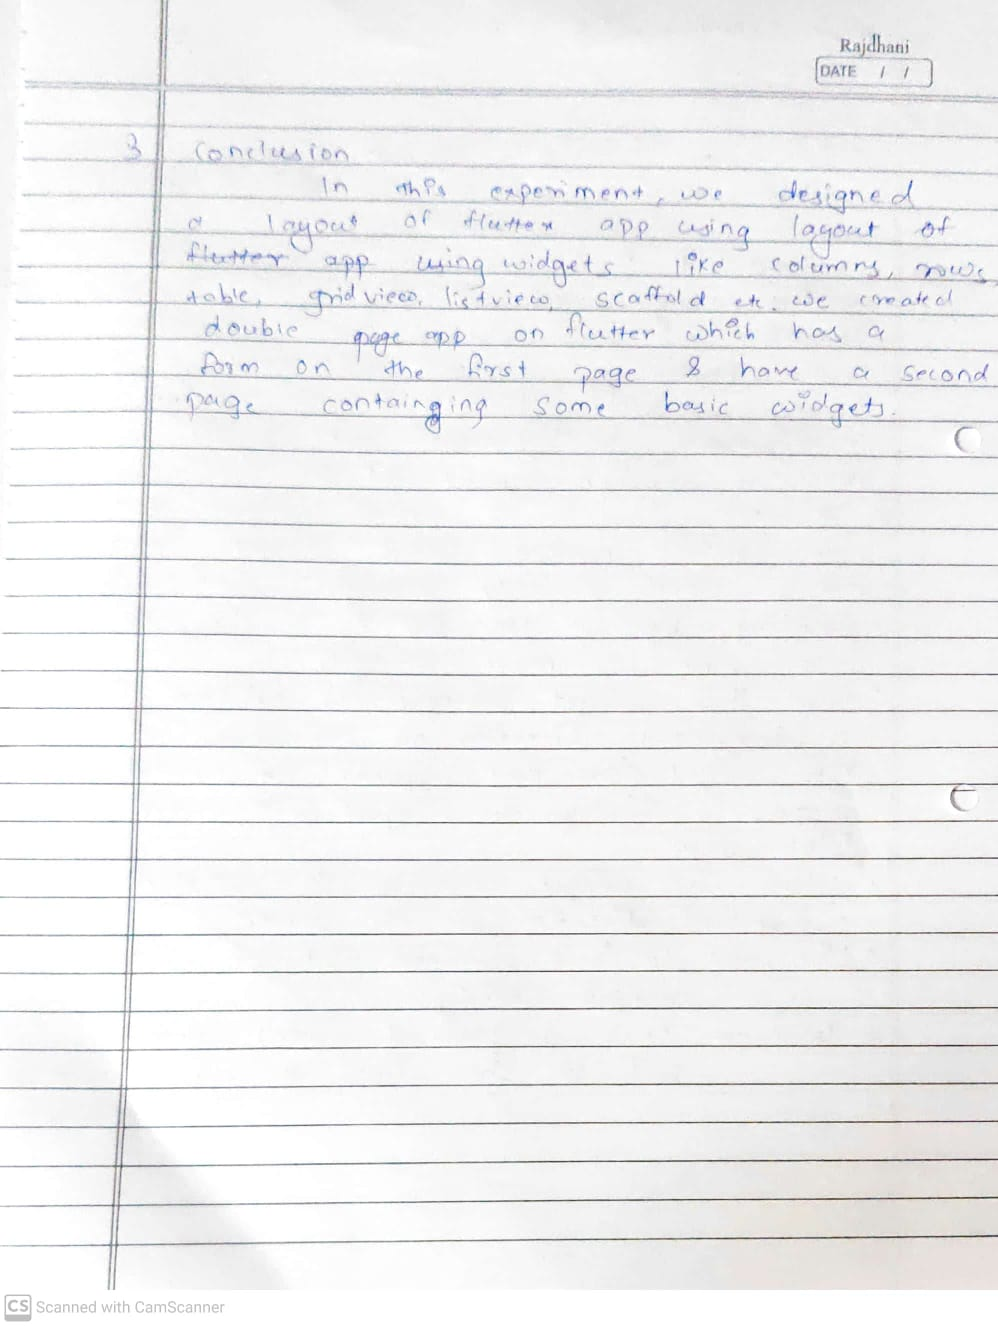 Rajdhani
DATE / /
3 Conclusion
In this experiment, we designed
a layout of flutter app using layout of
flutter app using widgets like columns, rows,
table, gridview, listview, scaffold etc. we created
double page app on flutter which has a
form on the first page & have a second
page containging some basic widgets.
CS Scanned with CamScanner